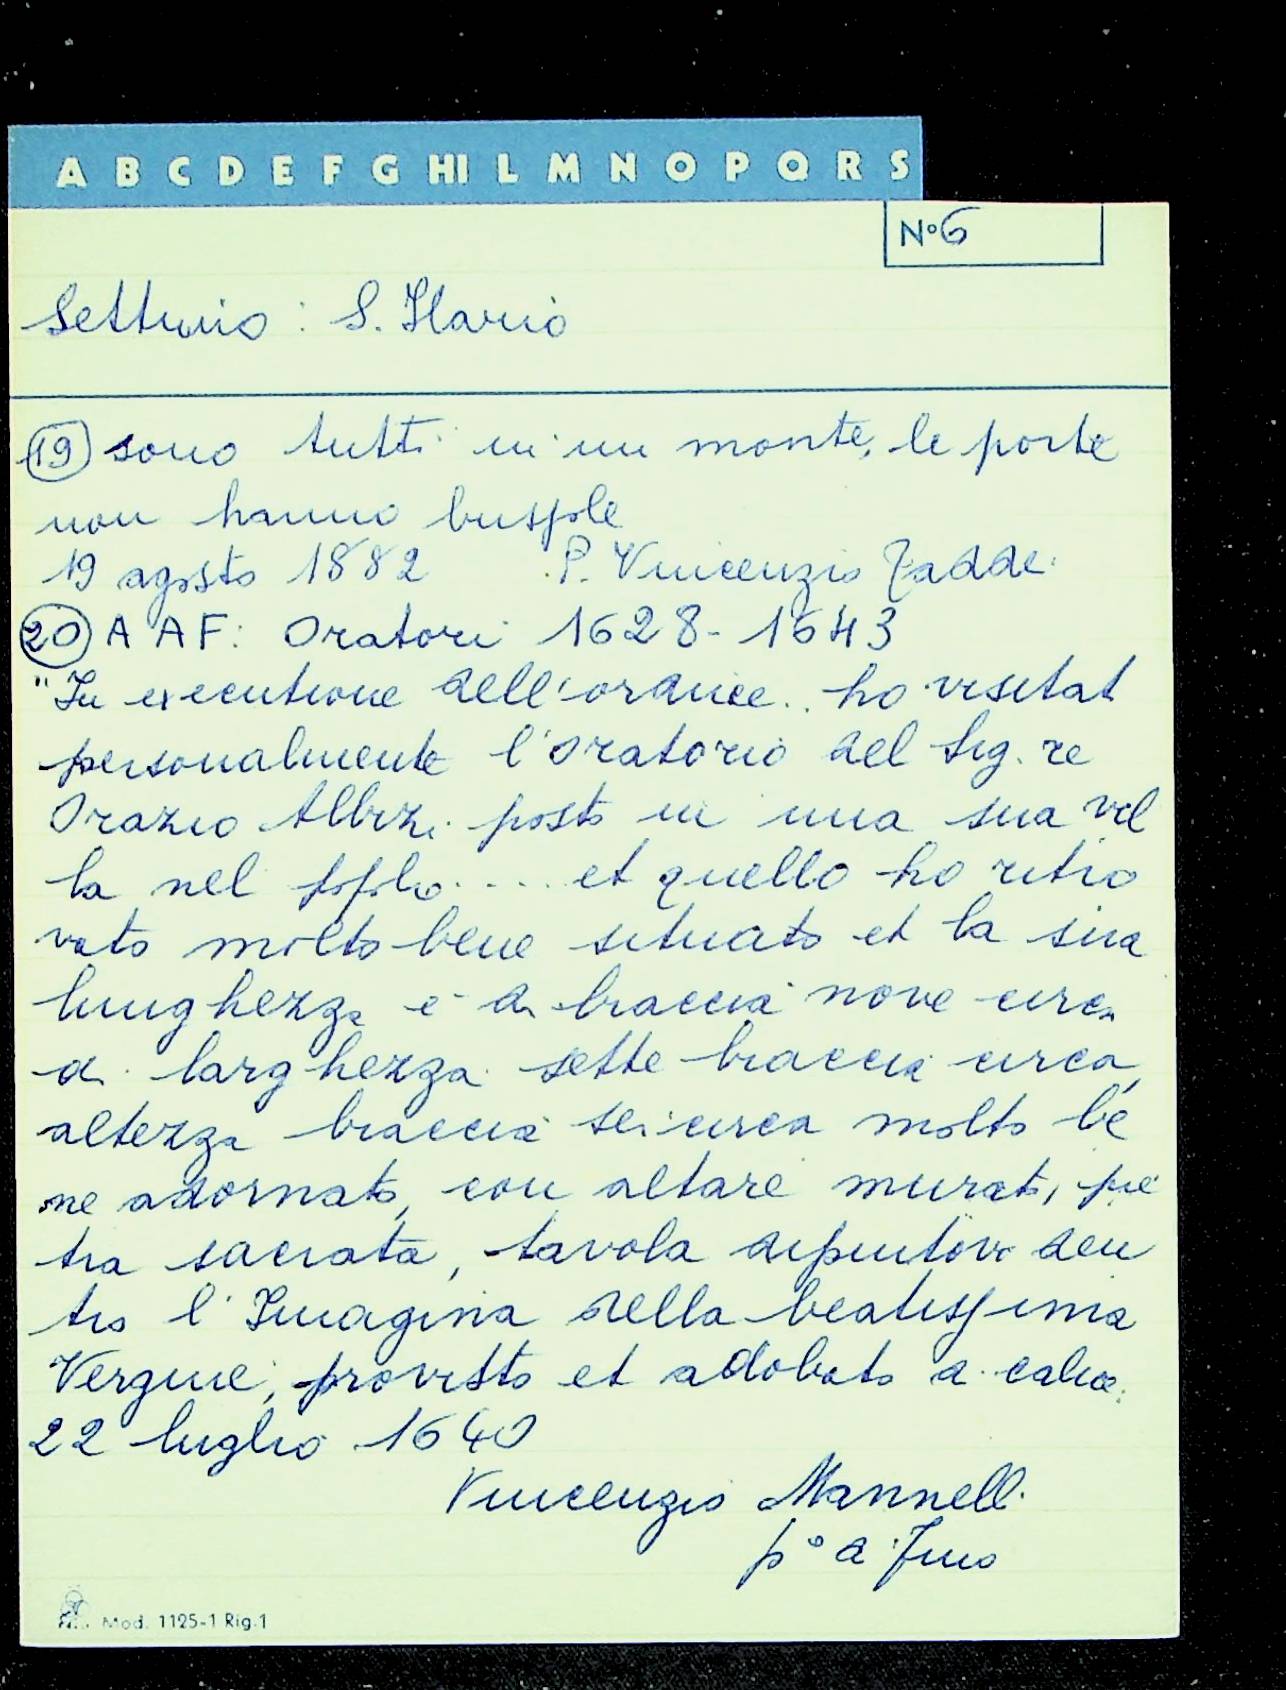 A B C D E F G HI L M N O P Q R S
N° 6
Settimo : S. Ilario
19 sono tutti in un monte, le porte
non hanno bussole
19 agosto 1882 P. Vincenzio Taddei
20 A A F: Oratori 1628-1643
"In executione dell'ordine.. ho visitat
personalmente l'oratorio del Sig.re
Orazio Albizi posto in una sua vil
la nel popolo.... et quello ho ritro
vato molto bene situato et la sua
lunghezza è di braccia nove circa
di larghezza sette braccia circa,
altezza braccia sei circa molto be
ne adornato, con altare murato, pie
tra sacrata, tavola dipintovi den
tro l'Imagina della beatissima
Vergine, provisto et adobato a calice.
22 luglio 1640
Vincenzio Mannelli
p° a
Mod. 1125-1 Rig.1